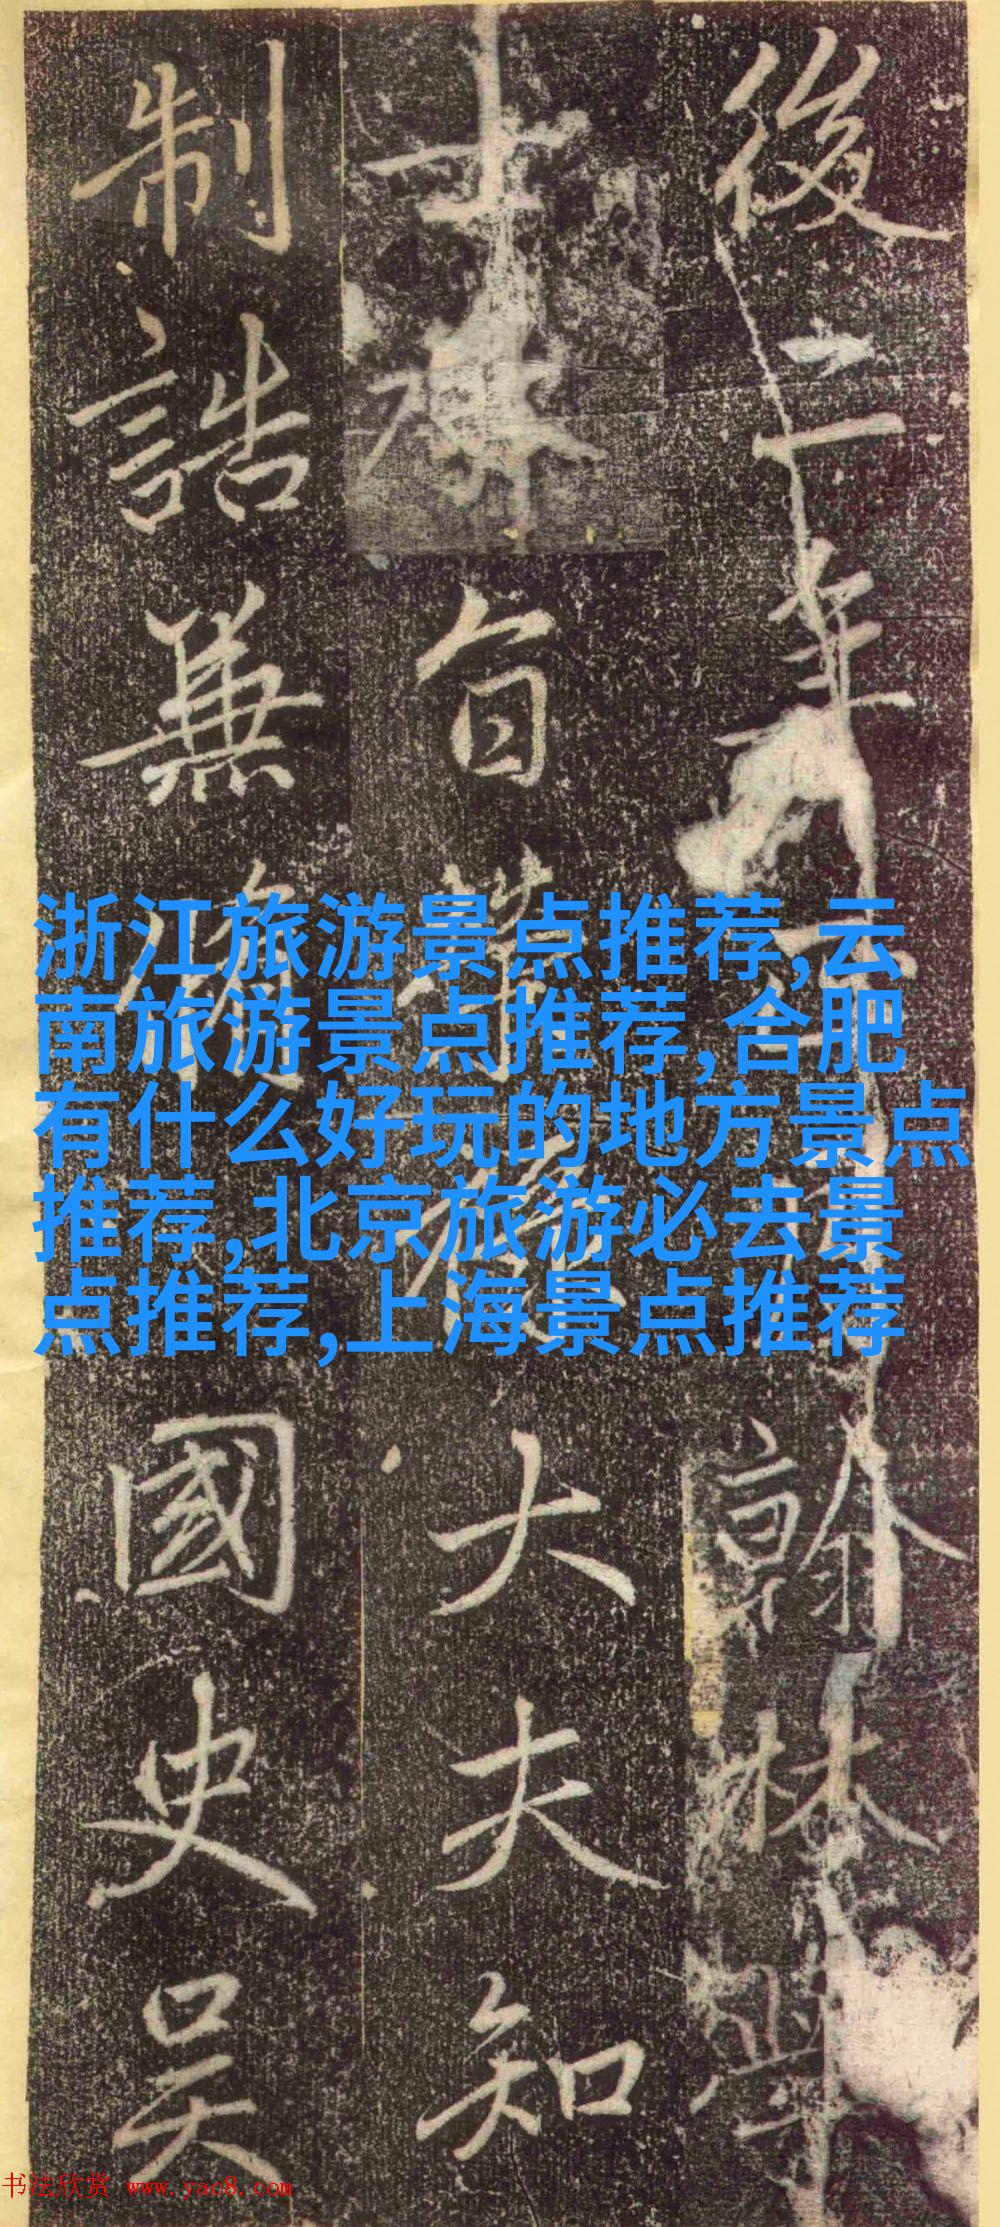 後二年
翰林學
士
旨
大夫知
制誥兼脩
國史吴
浙江旅游景点推荐,云
南旅游景点推荐,合肥
有什么好玩的地方景点
推荐,北京旅游必去景
点推荐,上海景点推荐
书法欣赏 www.yac8.com